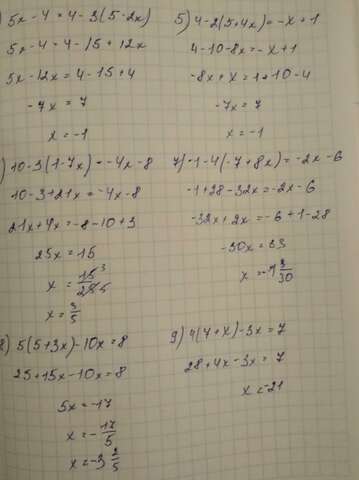 ) 5x-4=4-3(5-2x)
5x-4=4-15+12x
5x-12x=4-15+4
-7x=7
x=-1
5) 4-2(5+4x)=-x+1
4-10-8x=-x+1
-8x+x=1+10-4
-7x=7
x=-1
) 10-3(1-7x)=-4x-8
10-3+21x=-4x-8
21x+4x=-8-10+3
25x=15
x=15 3/25 5
x=3/5
7) -1-4(-7+8x)=-2x-6
-1+28-32x=-2x-6
-32x+2x=-6+1-28
-30x=33
x=-1 3/30
8) 5(5+3x)-10x=8
25+15x-10x=8
5x=-17
x=-17/5
x=-3 2/5
9) 4(7+x)-3x=7
28+4x-3x=7
x=-21